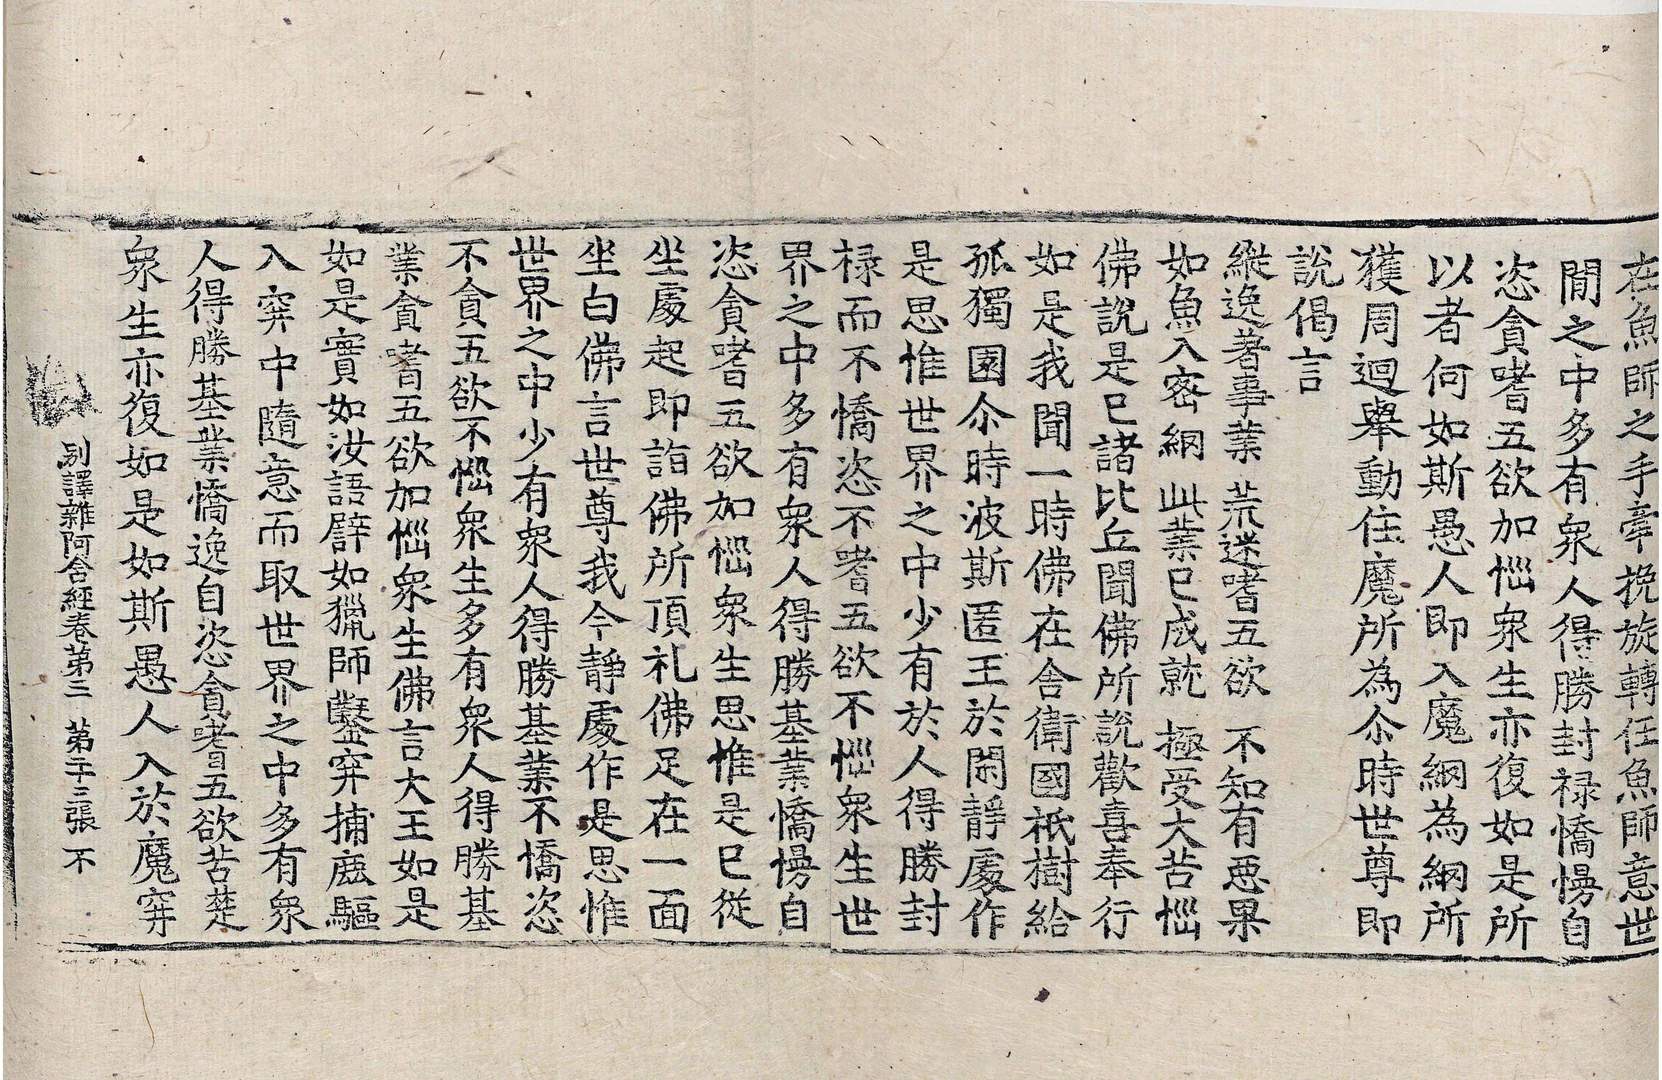 在魚師之手牽挽旋轉任魚師意世
間之中多有衆人得勝封禄憍慢自
恣貪嗜五欲加惱衆生亦復如是所
以者何如斯愚人即入魔網為網所
獲周迴舉動住魔所為尒時世尊即
說偈言
縱逸著事業 荒迷嗜五欲 不知有惡果
如魚入密網 此業已成就 極受大苦惱
佛說是已諸比丘聞佛所說歡喜奉行
如是我聞一時佛在舍衛國祇樹給
孤獨園尒時波斯匿王於閑靜處作
是思惟世界之中少有於人得勝封
禄而不憍恣不嗜五欲不惱衆生世
界之中多有衆人得勝基業憍慢自
恣貪嗜五欲加惱衆生思惟是已從
坐處起即詣佛所頂礼佛足在一面
坐白佛言世尊我今靜處作是思惟
世界之中少有衆人得勝基業不憍恣
不貪五欲不惱衆生多有衆人得勝基
業貪嗜五欲加惱衆生佛言大王如是
如是實如汝語辟如獵師鑿穽捕鹿驅
入穽中隨意而取世界之中多有衆
人得勝基業憍逸自恣貪嗜五欲苦楚
衆生亦復如是如斯愚人入於魔穽
別譯雜阿含經卷第三 第二十三張 不